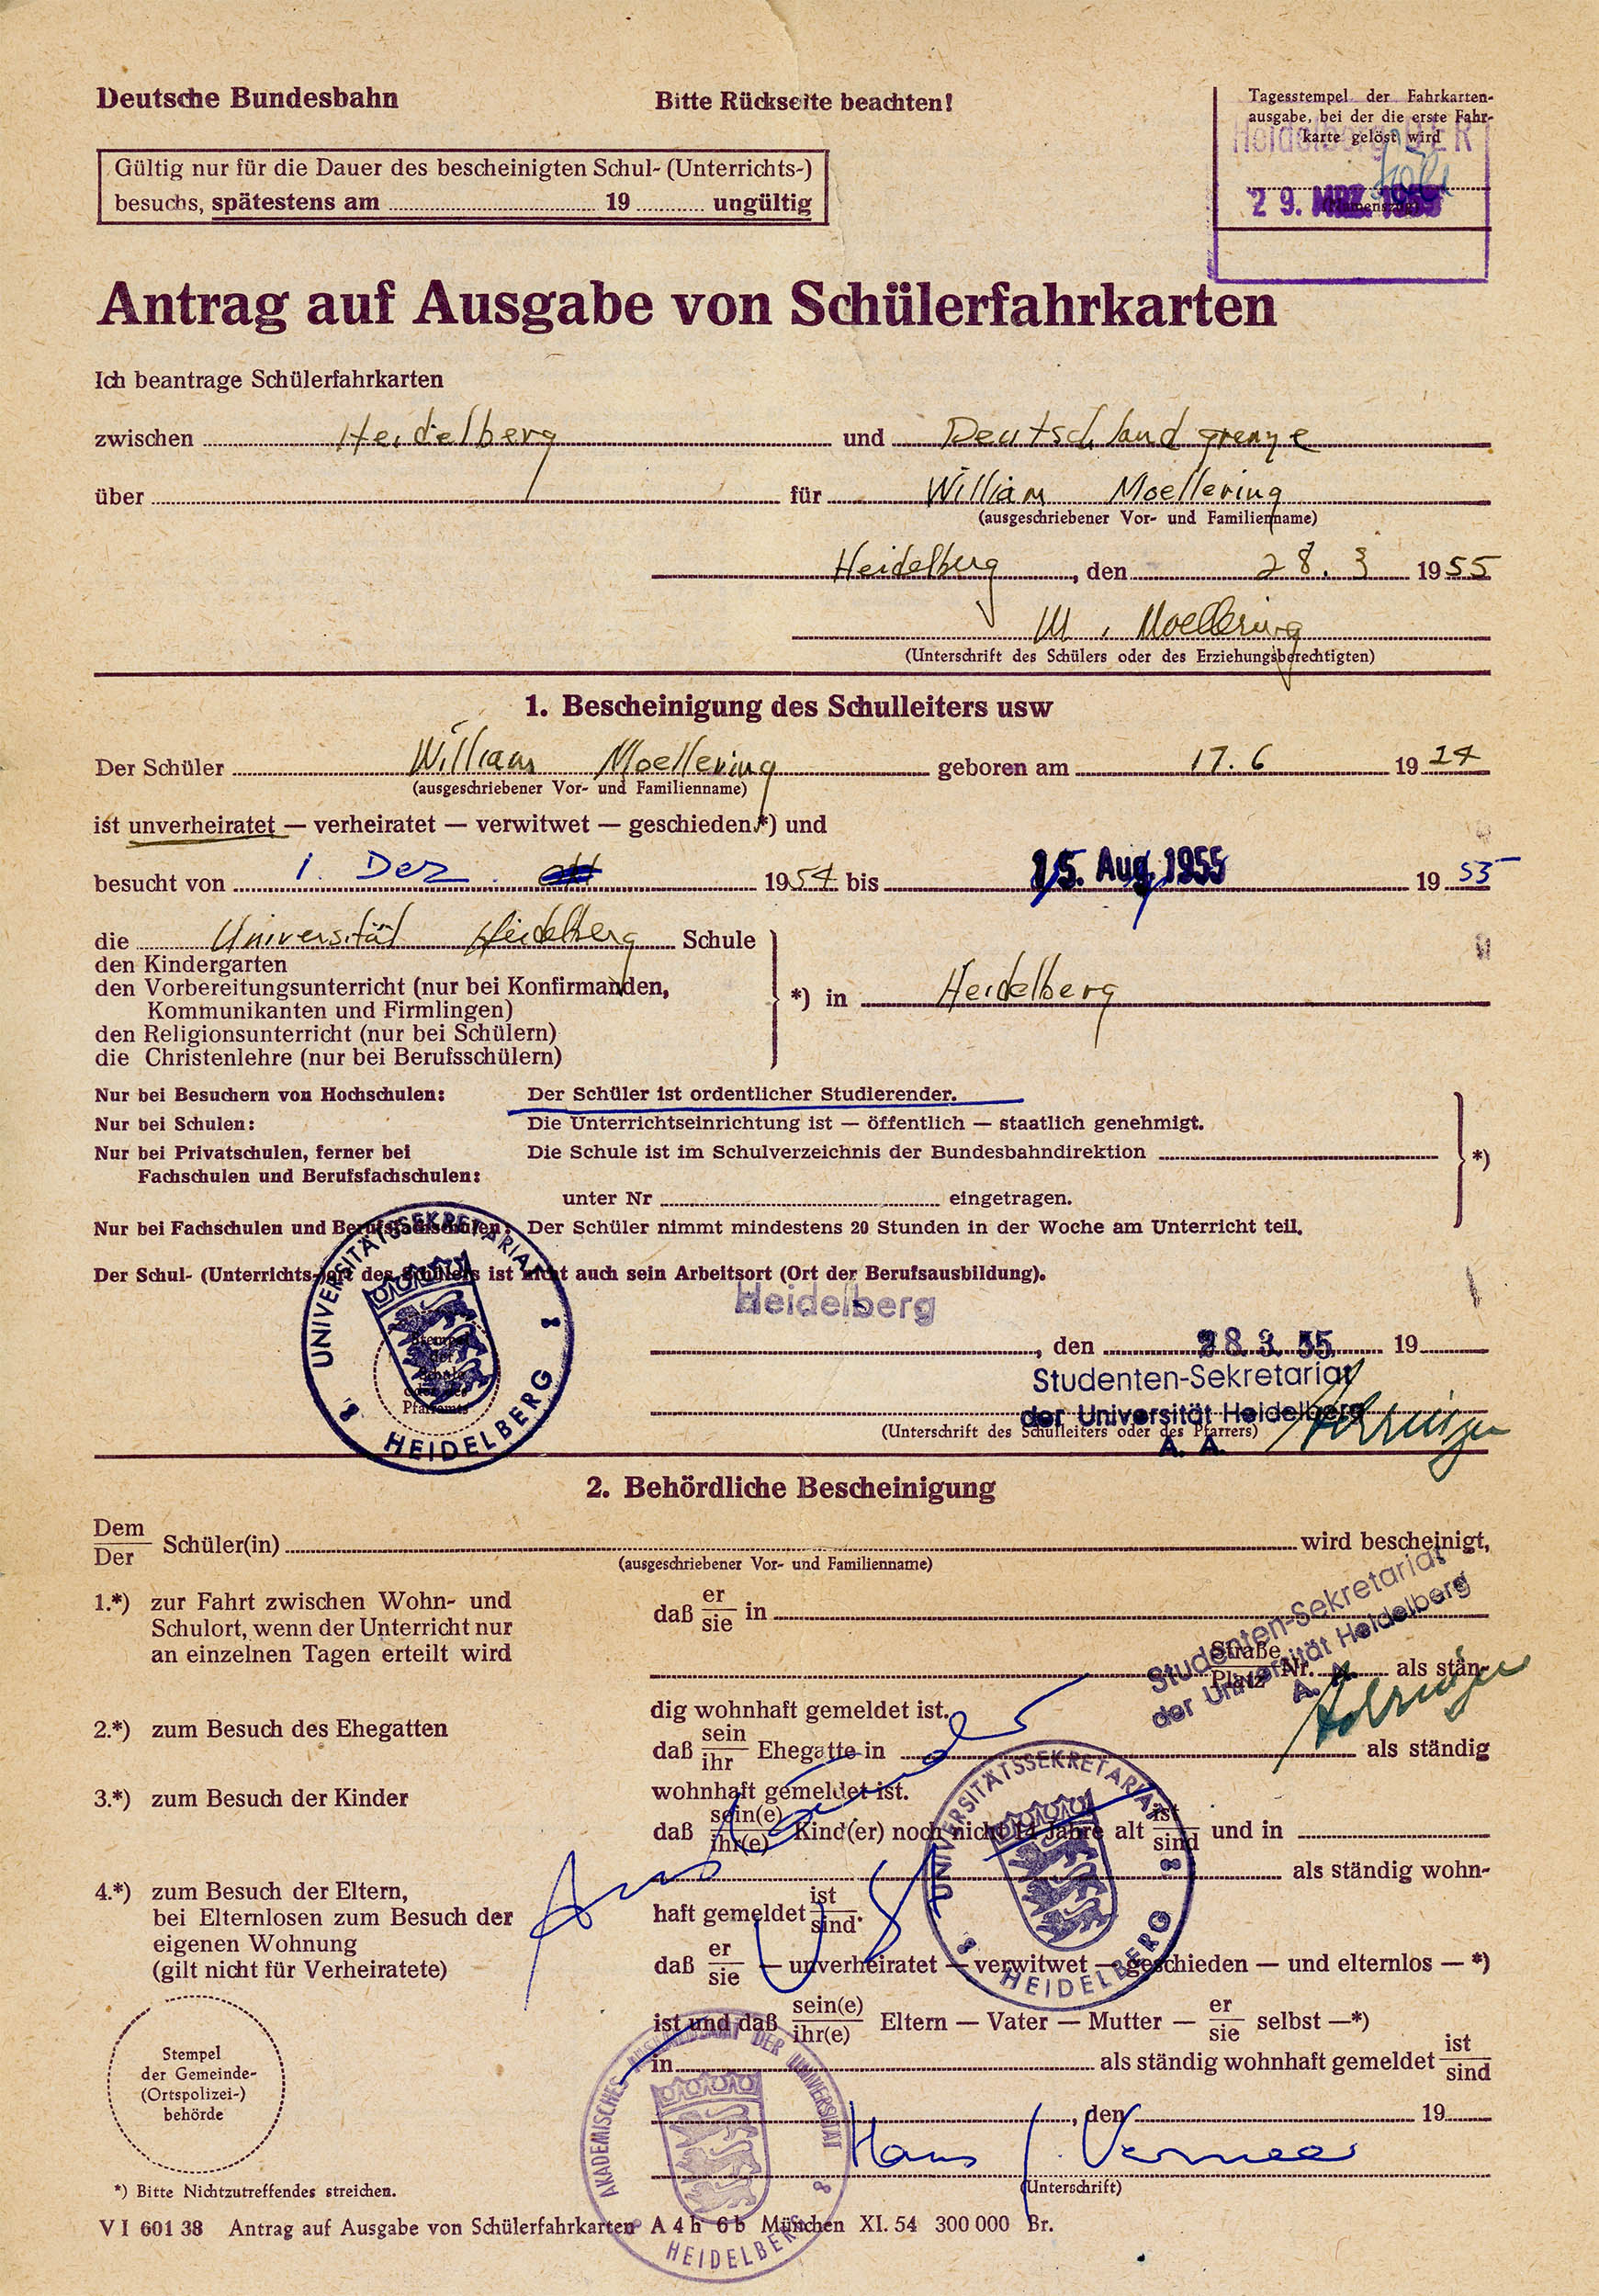 Deutsche Bundesbahn
Bitte Rückseite beachten!
Tagesstempel der Fahrkarten-
ausgabe, bei der die erste Fahr-
karte gelöst wird
Heidelberg DER
29. MRZ. 1955
(Namenszug)
Gültig nur für die Dauer des bescheinigten Schul- (Unterrichts-)
besuchs, spätestens am 19 ungültig
Antrag auf Ausgabe von Schülerfahrkarten
Ich beantrage Schülerfahrkarten
zwischen Heidelberg und Deutschland grenze
über für William Moellering
(ausgeschriebener Vor- und Familienname)
Heidelberg, den 28. 3 1955
W. Moellering
(Unterschrift des Schülers oder des Erziehungsberechtigten)
1. Bescheinigung des Schulleiters usw
Der Schüler William Moellering geboren am 17. 6 19 24
(ausgeschriebener Vor- und Familienname)
ist unverheiratet — verheiratet — verwitwet — geschieden.*) und
besucht von 1. Dez. 1954 bis 15. Aug. 1955 19 55
die Universität Heidelberg Schule
den Kindergarten
den Vorbereitungsunterricht (nur bei Konfirmanden,
Kommunikanten und Firmlingen)
*) in Heidelberg
den Religionsunterricht (nur bei Schülern)
die Christenlehre (nur bei Berufsschülern)
Nur bei Besuchern von Hochschulen: Der Schüler ist ordentlicher Studierender.
Nur bei Schulen: Die Unterrichtseinrichtung ist — öffentlich — staatlich genehmigt.
Nur bei Privatschulen, ferner bei Die Schule ist im Schulverzeichnis der Bundesbahndirektion *)
Fachschulen und Berufsfachschulen:
unter Nr eingetragen.
Nur bei Fachschulen und Berufsfachschulen: Der Schüler nimmt mindestens 20 Stunden in der Woche am Unterricht teil.
Der Schul- (Unterrichts-)ort des Schülers ist nicht auch sein Arbeitsort (Ort der Berufsausbildung).
UNIVERSITÄTSSEKRETARIAT
HEIDELBERG
Stempel
der
Schule
oder des
Pfarramts
Heidelberg
, den 28. 3. 55 19
Studenten-Sekretariat
der Universität Heidelberg
(Unterschrift des Schulleiters oder des Pfarrers)
A. A.
2. Behördliche Bescheinigung
Dem
Der Schüler(in) wird bescheinigt,
(ausgeschriebener Vor- und Familienname)
1.*) zur Fahrt zwischen Wohn- und
Schulort, wenn der Unterricht nur
an einzelnen Tagen erteilt wird
daß er
sie in
Straße
Platz Nr. als stän-
dig wohnhaft gemeldet ist.
Studenten-Sekretariat
der Universität Heidelberg
A. A.
2.*) zum Besuch des Ehegatten
daß sein
ihr Ehegatte in als ständig
wohnhaft gemeldet ist.
3.*) zum Besuch der Kinder
daß sein(e)
ihr(e) Kind(er) noch nicht 14 Jahre alt ist
sind und in
als ständig wohn-
haft gemeldet ist
sind.
UNIVERSITÄTSSEKRETARIAT
HEIDELBERG
4.*) zum Besuch der Eltern,
bei Elternlosen zum Besuch der
eigenen Wohnung
(gilt nicht für Verheiratete)
daß er
sie — unverheiratet — verwitwet — geschieden — und elternlos — *)
ist und daß sein(e)
ihr(e) Eltern — Vater — Mutter — er
sie selbst —*)
in als ständig wohnhaft gemeldet ist
sind
Ausländer
Stempel
der Gemeinde-
(Ortspolizei-)
behörde
AKADEMISCHES AUSLANDSAMT DER UNIVERSITÄT
HEIDELBERG
, den 19
Hans J. Vermeer
(Unterschrift)
*) Bitte Nichtzutreffendes streichen.
V I 601 38 Antrag auf Ausgabe von Schülerfahrkarten A 4 h 6 b München XI. 54 300 000 Br.